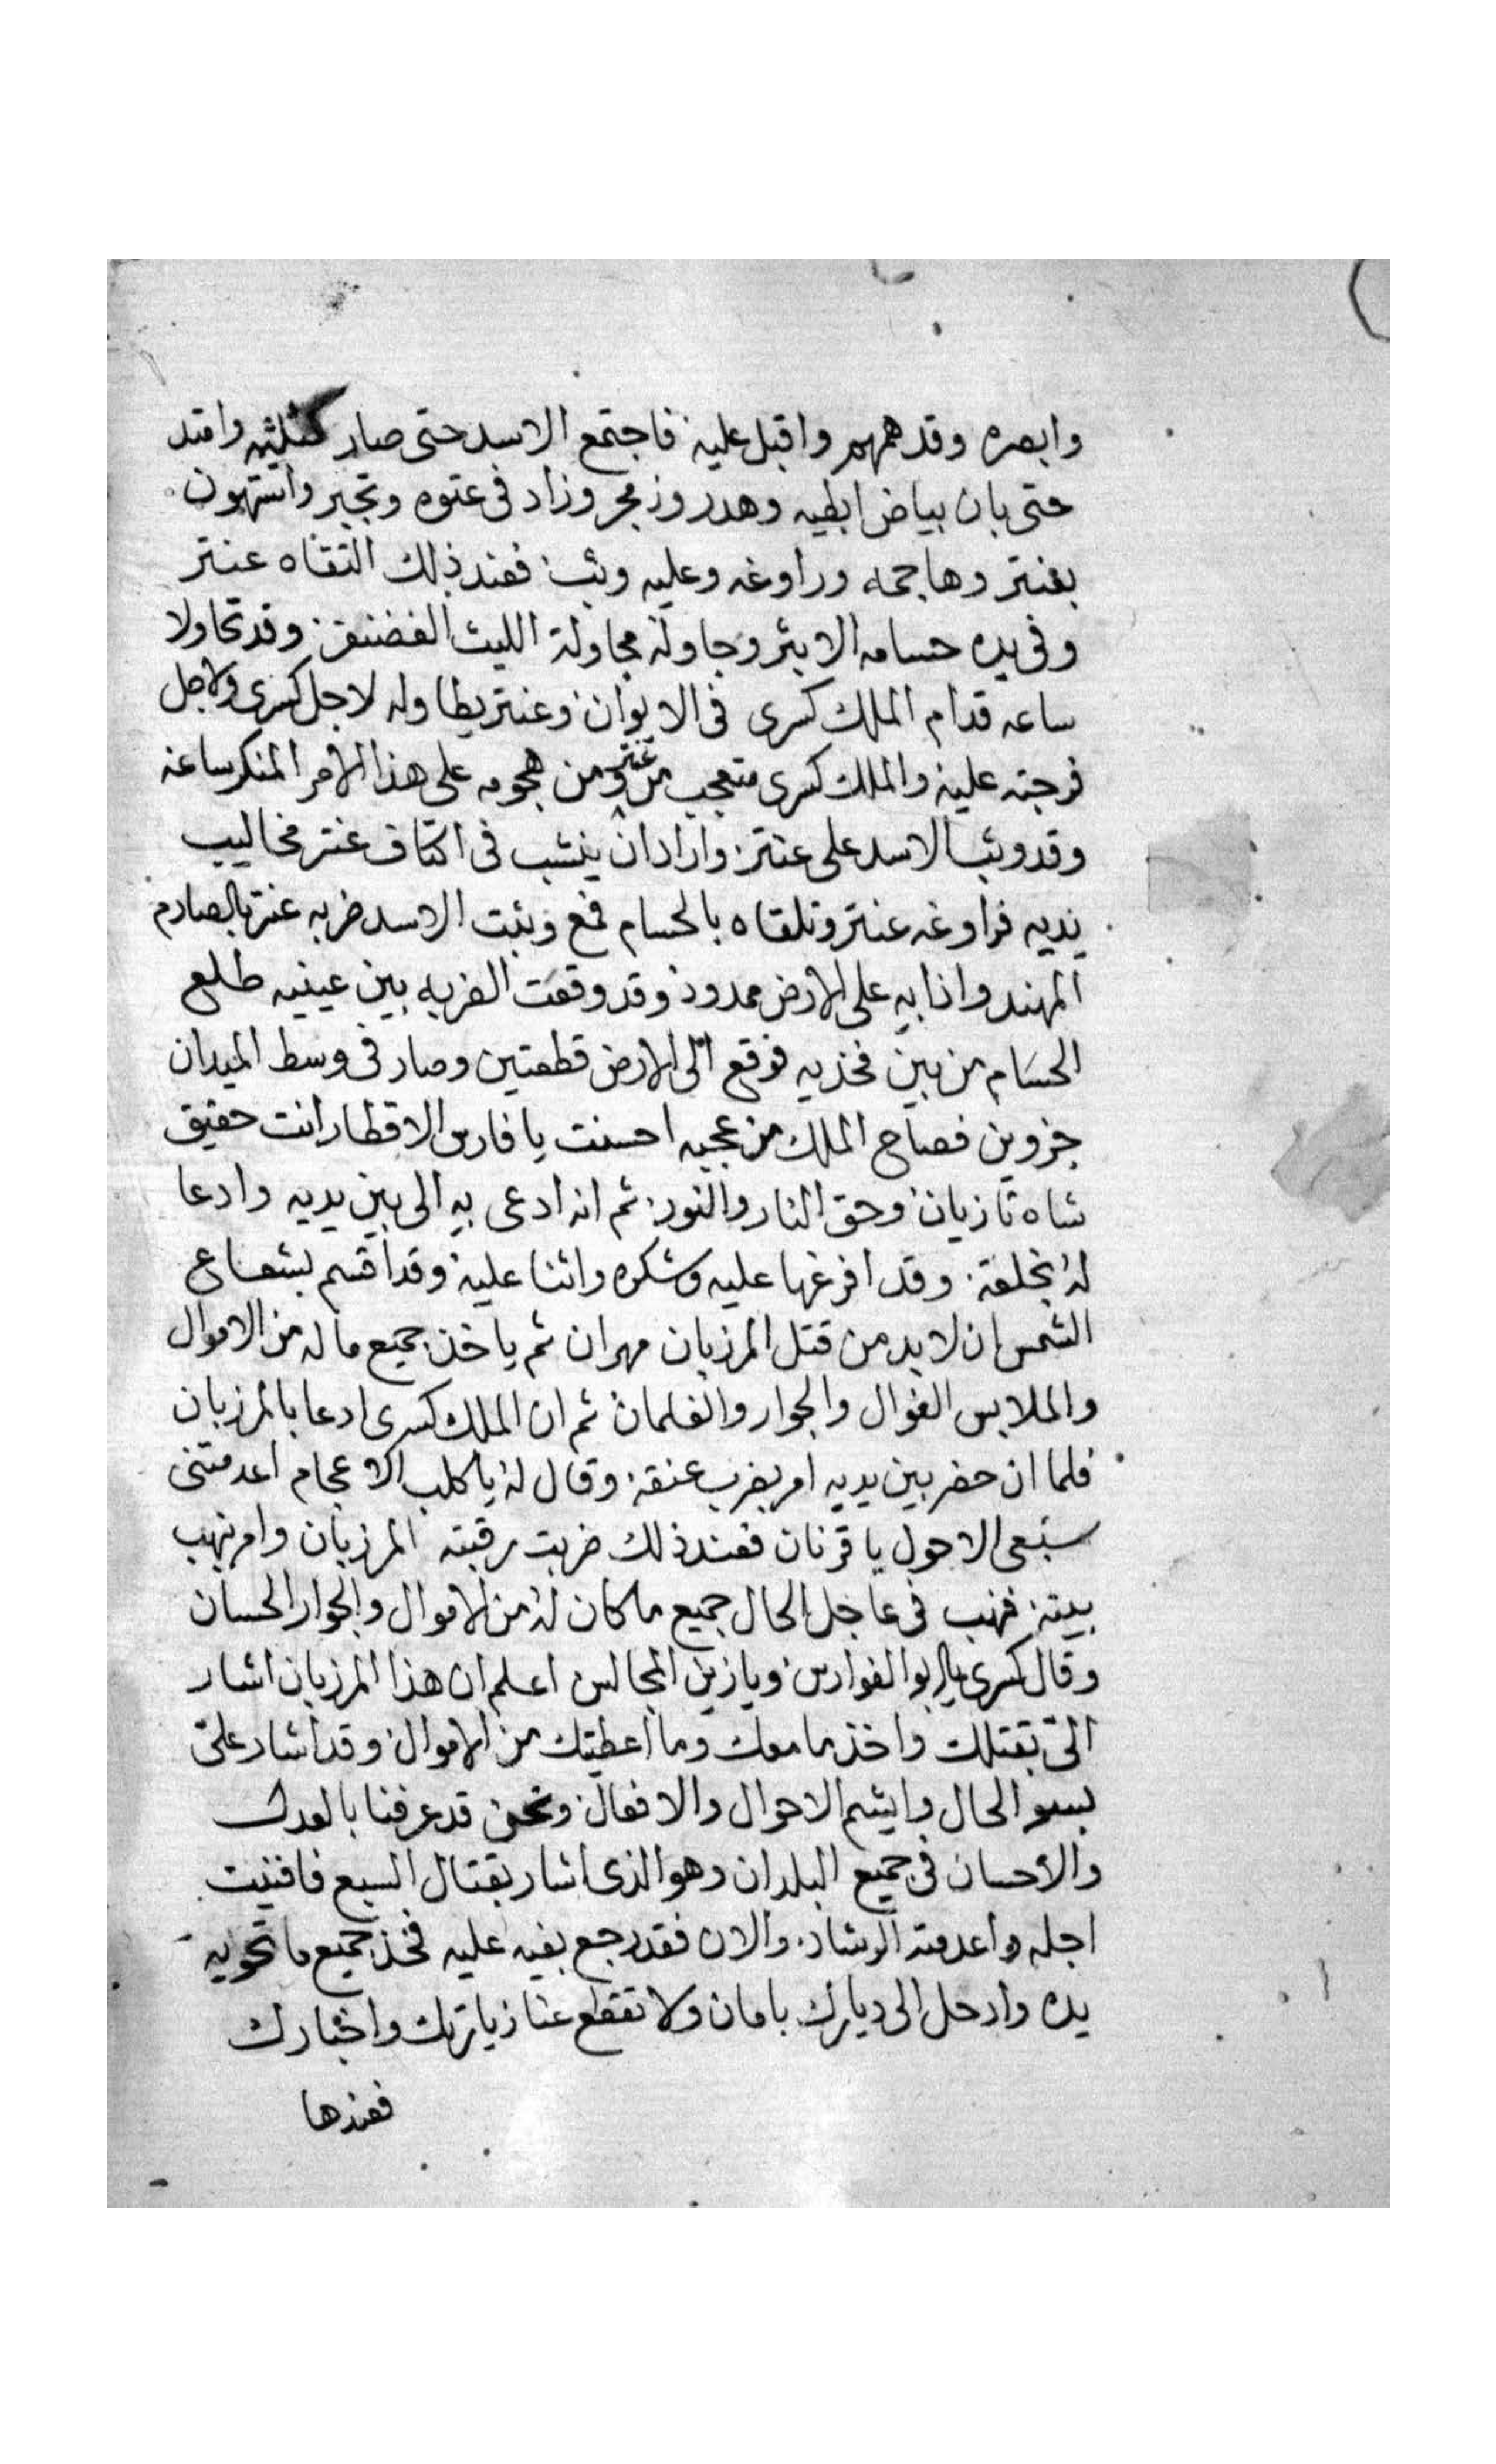 وابصره وقد همهم واقبل عليه فاجتمع الاسد حتى صار وامتد
حتى بان بياض ابطيه وهدر وزمجر وزاد فى عتوه وتجبر واستهون
بعنتر وهاجمه وراوغه وعليه وثب فعند ذلك التقاه عنتر
وفى يده حسامه الابتر وجاوله مجاولة الليث الغضنفر وقد تجاولا
ساعه قدام الملك كسرى فى الايوان وعنتر يطاوله لاجل كسرى ولاجل
فرجته عليه والملك كسرى متعجب من عنتر ومن هجومه على هذا الامر المنكر ساعة
وقد وثب الاسد على عنتر وارادان ينشب فى اكتاف عنتر مخاليب
يديه فراوغه عنتر وتلقاه بالحسام فمع وثبت الاسد ضربه عنتر بالصارم
المهند واذا به على الارض ممدود وقد وقعت الضربه بين عينيه طلع
الحسام من بين فخذيه فوقع الى الارض قطعتين وصار فى وسط الميدان
جزوين فصاح الملك من عجبه احسنت يا فارس الاقطار انت حقيق
شاه تازيان وحق النار والنور ثم انه ادعى به الى بين يديه وادعا
له بخلعة وقد افرغها عليه وشكره واثنا عليه وقد اقسم بشعاع
الشمس ان لا بد من قتل المرزبان مهران ثم ياخذ جميع ما له من الاموال
والملابس الغوال والجوار والغلمان ثم ان الملك كسرى ادعا بالمرزبان
فلما ان حضر بين يديه امر بضرب عنقه وقال له يا كلب الاعجام اعدمتنى
سبعى الاحول يا قرنان فعند ذلك ضربت رقبته المرزبان وامر بنهب
بيته فنهب فى عاجل الحال جميع ما كان له من الاموال والجوار الحسان
وقال كسرى يا ابو الفوارس ويا زين المجالس اعلم ان هذا المرزبان اشار
الىّ بقتلك واخذ ما معك وما اعطيتك من الاموال وقد اشار علىّ
بسو الحال وايشم الاحوال والافعال ونحن قد عرفنا بالعدل
والاحسان فى جميع البلدان وهو الذى اشار بقتال السبع فافنيت
اجله واعدمته الرشاد والان فقد رجع بغيه عليه فخذ جميع ما تحويه
يده وارحل الى ديارك بامان ولا تقطع عنا زيارتك واخبارك
فعندها